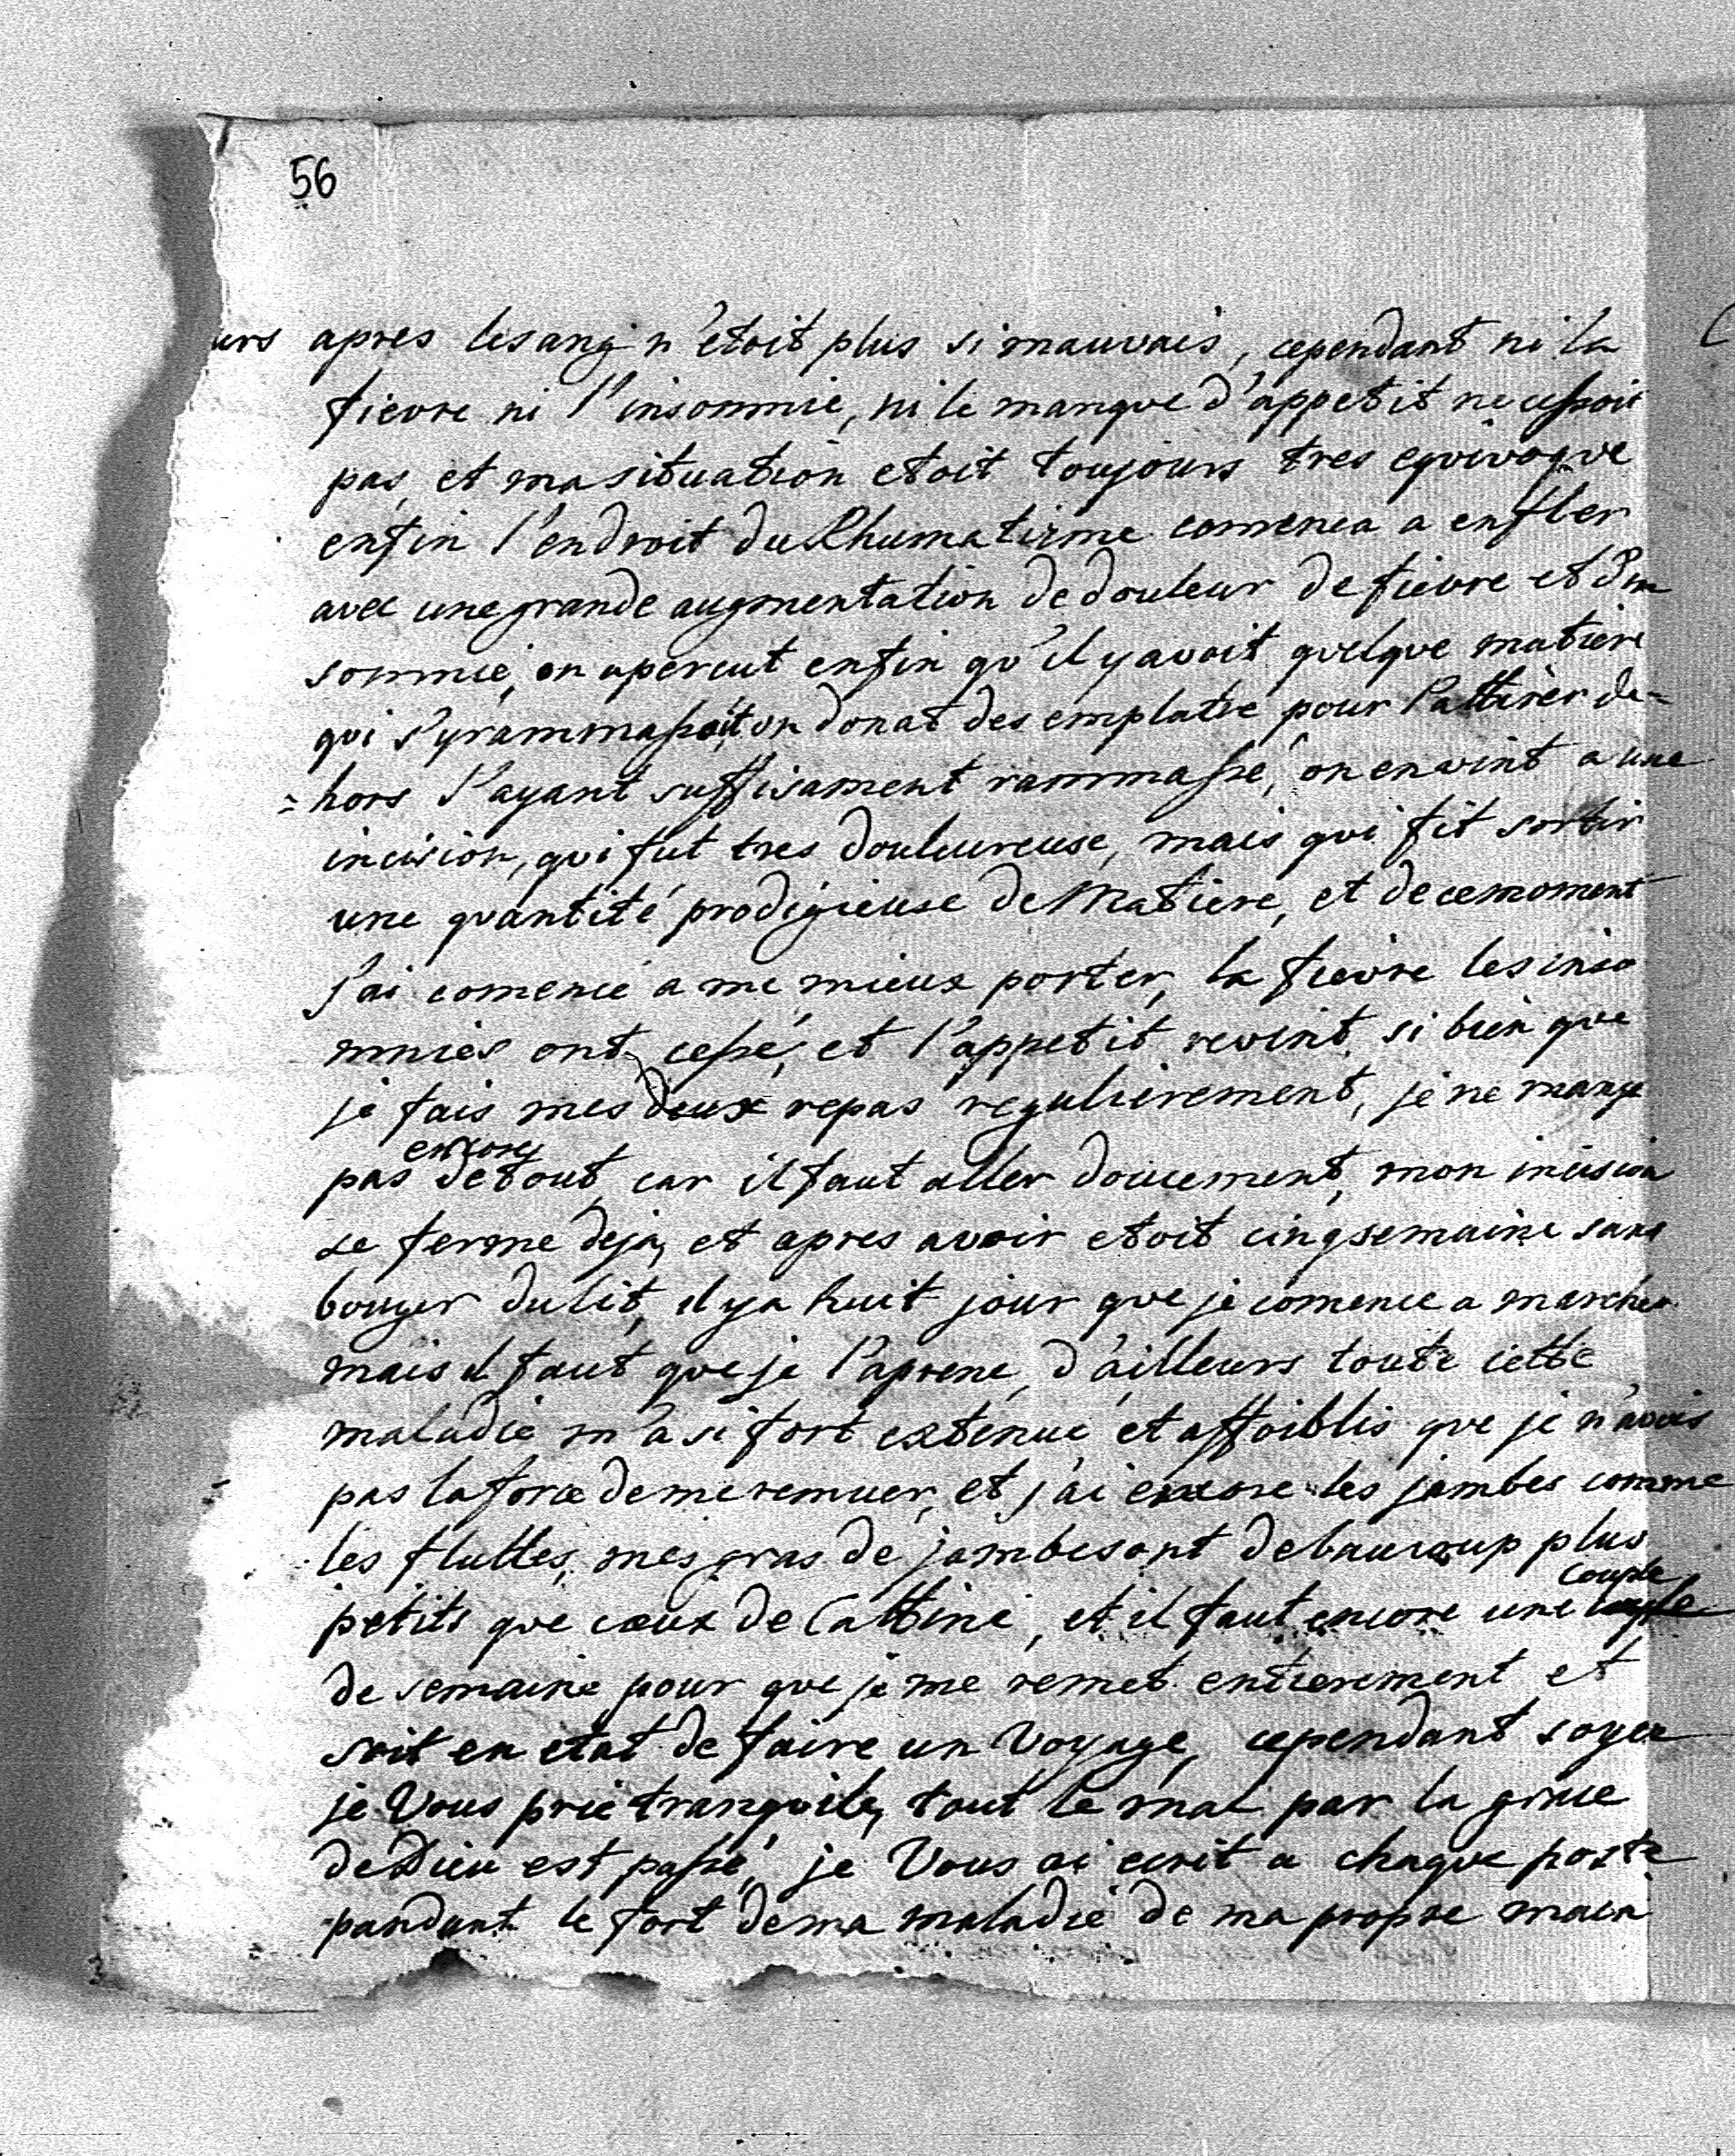 56
urs apres lesang n'etoit plus si mauvais, cependant ni la
fievre ni l'insomnie, ni le manque d'appetit ne cessoit
pas, et ma situation etoit toujours tres equivoque
enfin l'endroit du Rhumatizme comenca a enfler
avec une grande augmentation de douleur de fievre et d'in
somnie, on apercut enfin qu'il y avoit quelque matiere
qui s'y rammassoit, on donat des emplatre pour l'attirer de=
=hors l'ayant suffisament rammassé, on en vint a une
incision, qui fut tres douleureuse, mais qui fit sortir
une quantité prodigieuse de Matiere, et de ce moment
j'ai comencé a me mieux porter, la fievre les inso
mnies ont cessé, et l'appetit revint, si bien que
je fais mes deux repas regulierement, je ne mange
encore
pas de tout, car il faut aller doucement, mon incision
se ferme deja, et apres avoir etoit cinq semaine sans
bouger du lit, il y a huit jour que je comence a marcher
mais il faut que je l'aprene, d'ailleurs toute cette
maladie m'a si fort extenué et affoiblis que je n'avois
pas la force de me remuer, et j'ai encore les jambes comme
les fluttes, mes gras de jambes ont de baucoup plus
couple
petits que ceux de Cattine, et il faut encore une
de semaine pour que je me remet entierement et
soit en etat de faire un Voyage, cependant soyez
je Vous prie tranquile, tout le mal par la grace
de Dieu est passé, je Vous ai ecrit a chaque poste
pandant le fort de ma maladie de ma propre main